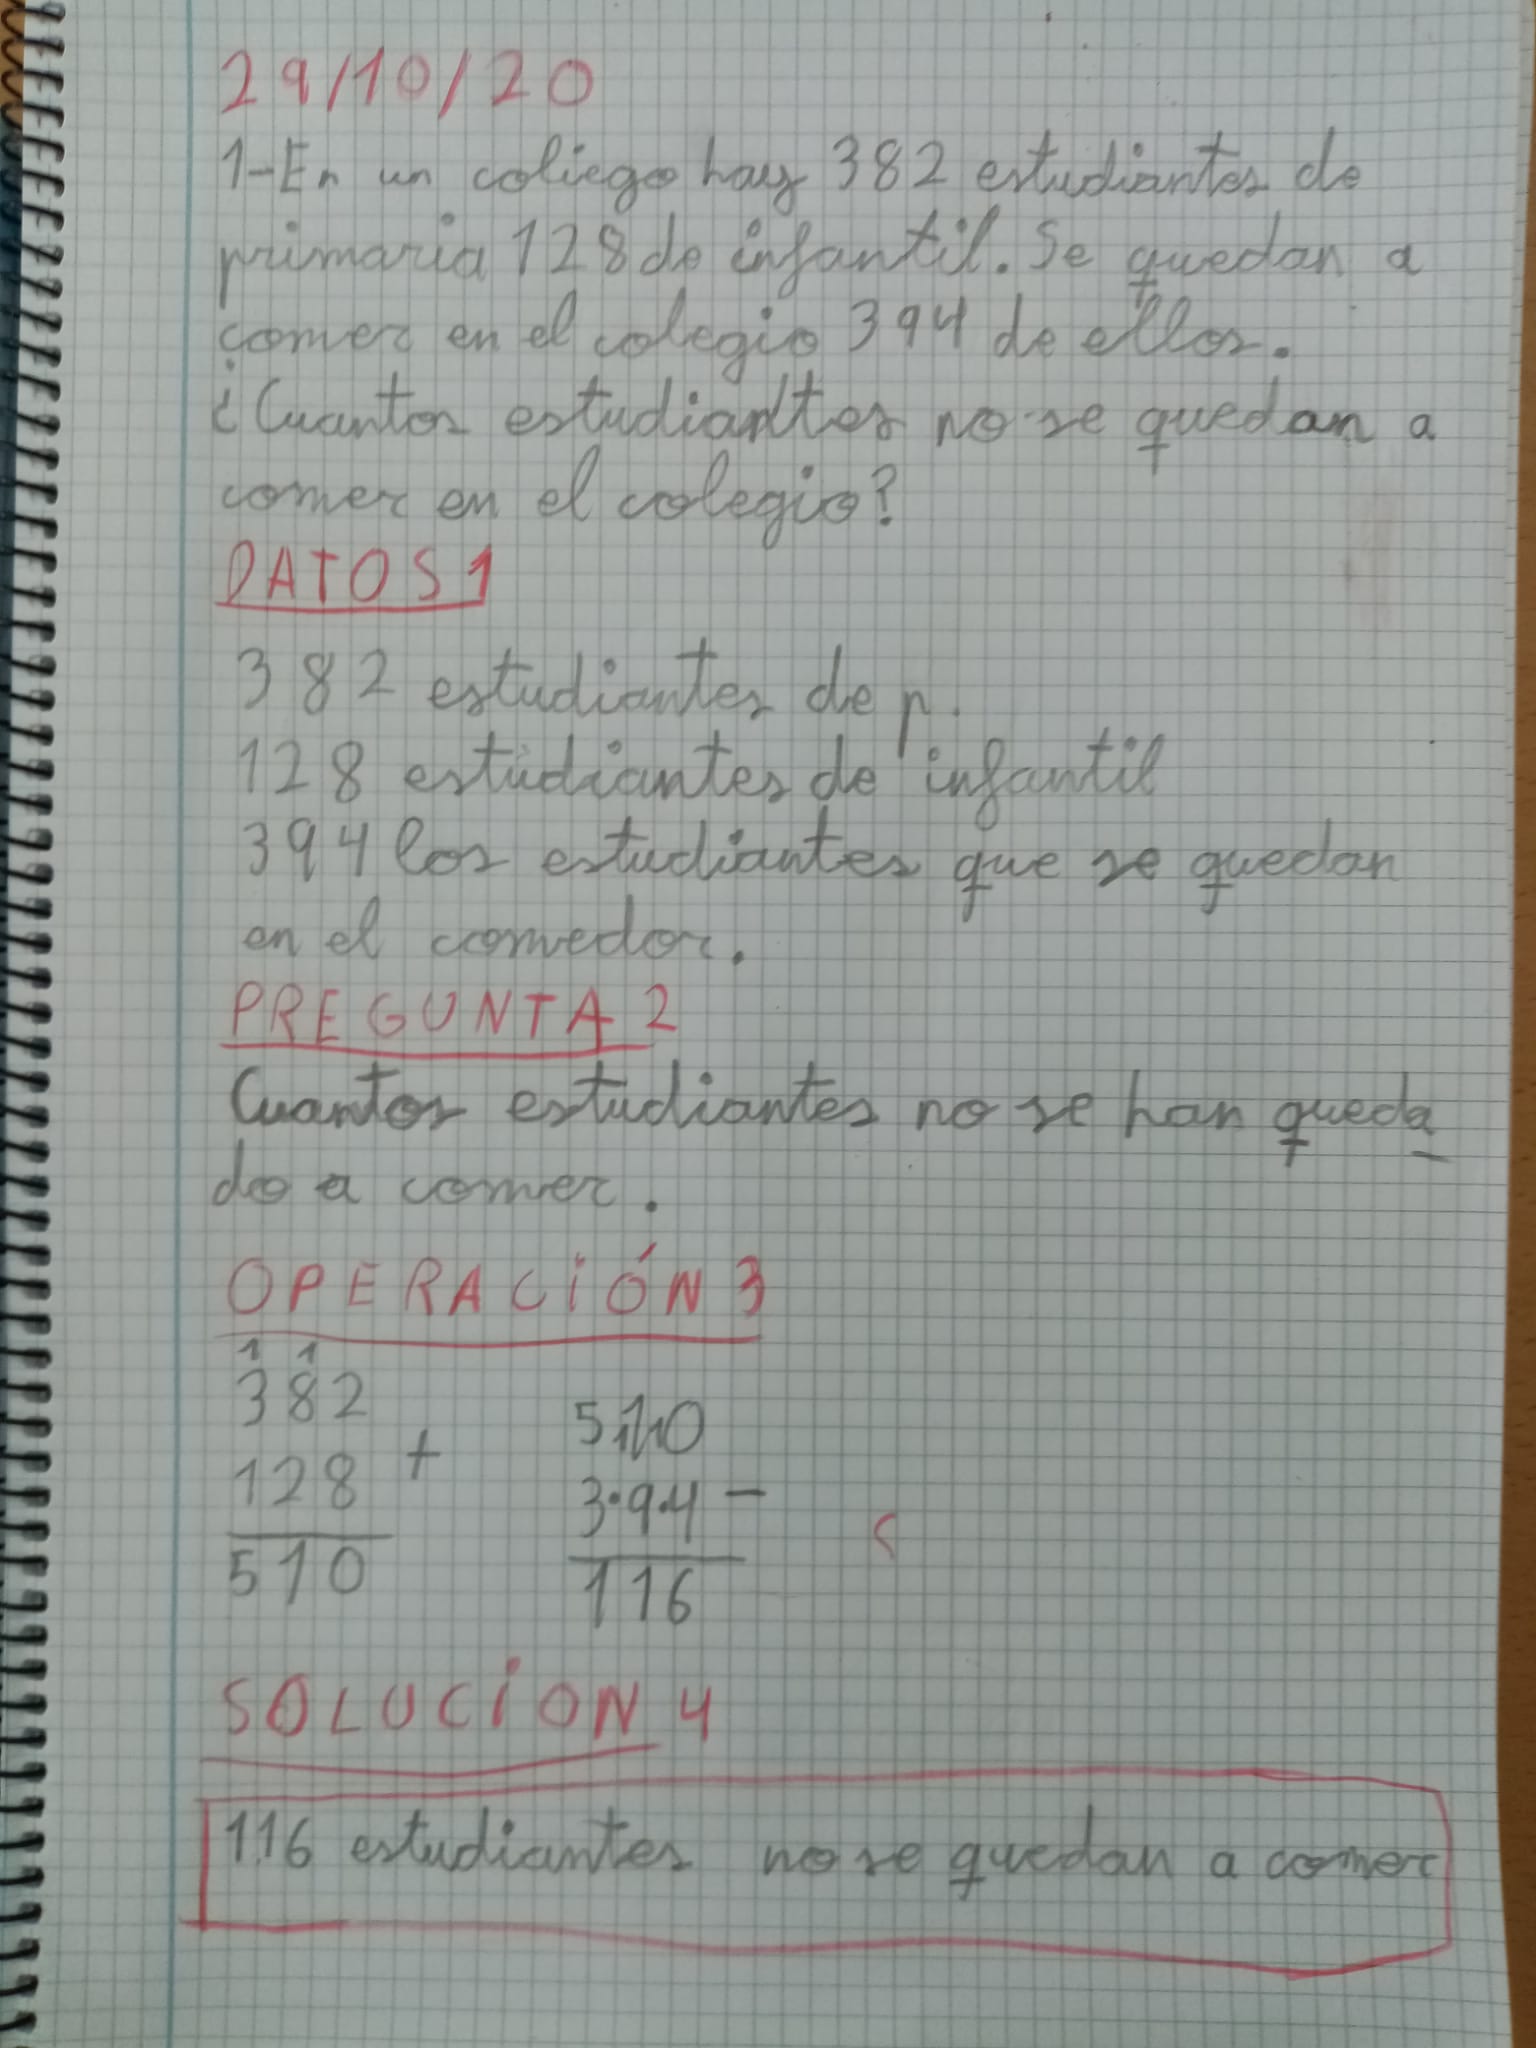 29/10/20
1-En un coliego hay 382 estudiantes de
primaria 128 de infantil. Se quedan a
comer en el colegio 394 de ellos.
¿Cuantos estudiantes no se quedan a
comer en el colegio?
DATOS 1
382 estudiantes de p.
128 estudiantes de infantil
394 los estudiantes que se quedan
en el comedor.
PREGUNTA 2
Cuantos estudiantes no se han queda
do a comer.
OPERACIÓN 3
1 1
382
128 +
510
510
394 -
116
SOLUCION 4
116 estudiantes no se quedan a comer